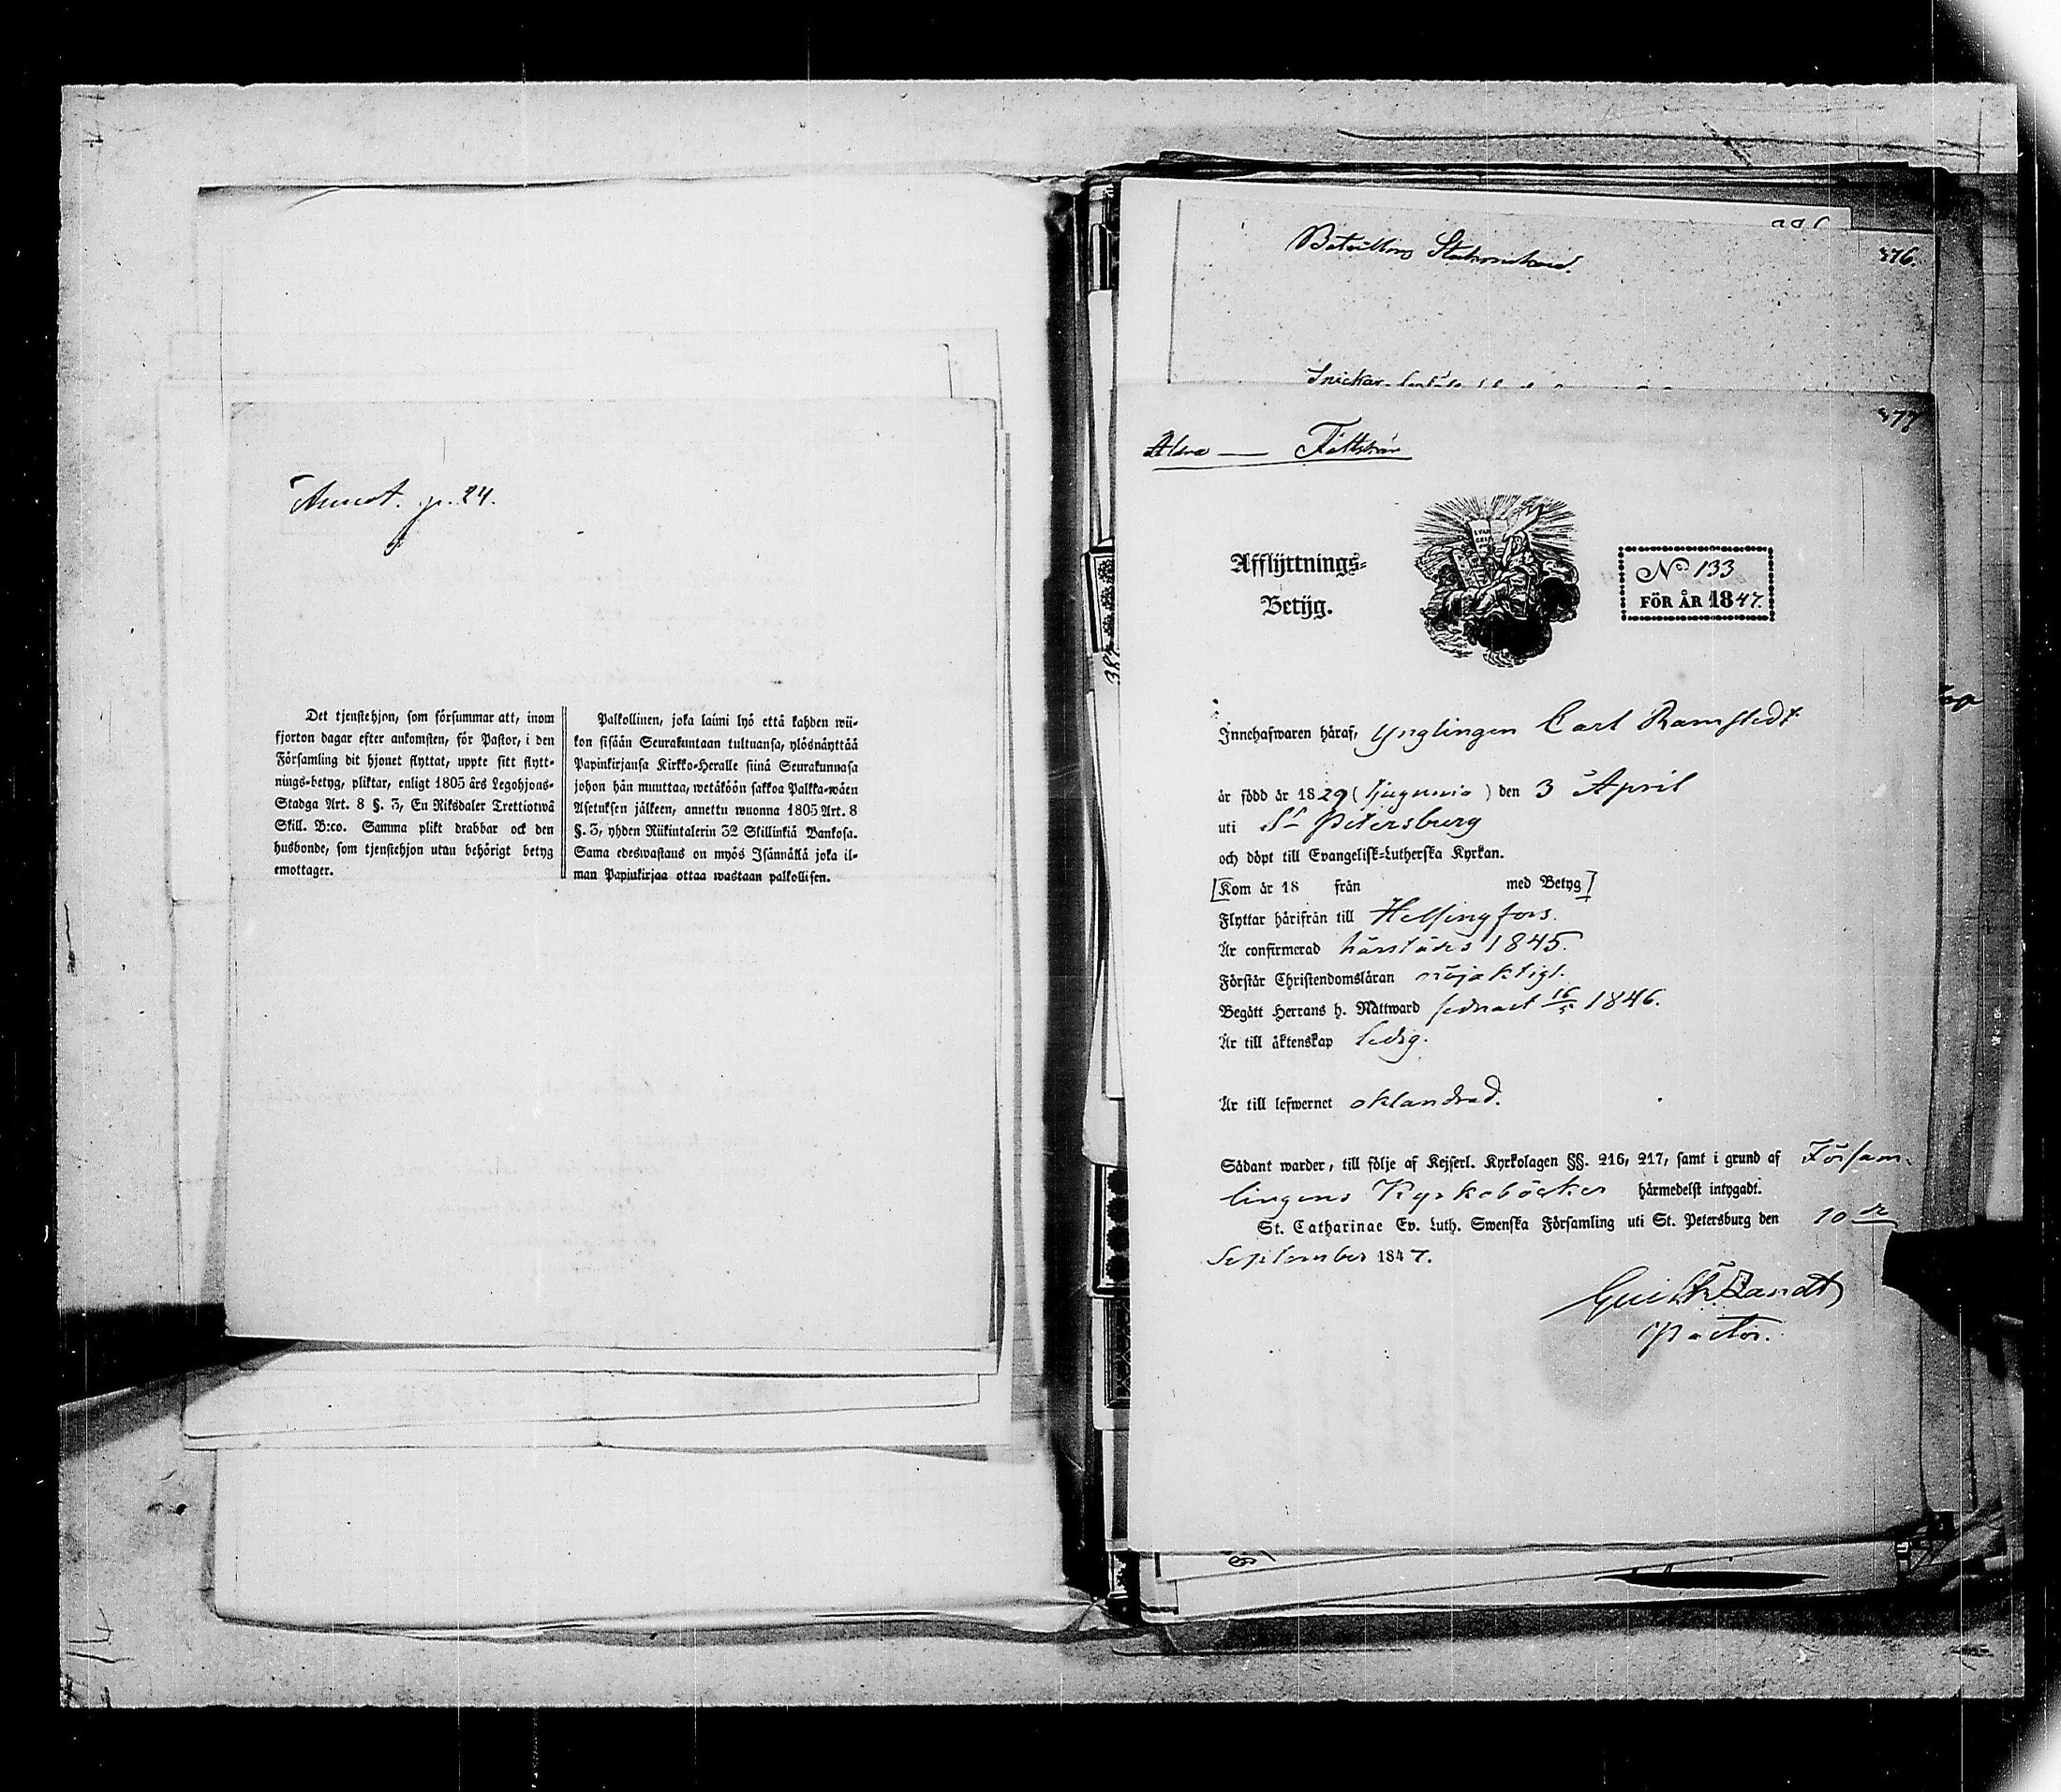 Annot. p. 24.
Det tjenstehjon, som försummar att, inom
fjorton dagar efter ankomsten, för Pastor, i den
Församling dit hjonet flyttat, uppte sitt flytt-
nings-betyg, pliktar, enligt 1805 års Legohjons-
Stadga Art. 8 §. 3, En Riksdaler Trettiotwå
Skill. B:co. Samma plikt drabbar ock den
husbonde, som tjenstehjon utan behörigt betyg
emottager.
Palkollinen, joka laimi lyö että kahden wii-
kon sisään Seurakuntaan tultuansa, ylösnäyttää
Papinkirjansa Kirkko-Heralle siinä Seurakunnasa
johon hän muuttaa, wetäköön sakkoa Palkka-wäen
Asetuksen jälkeen, annettu wuonna 1805 Art. 8
§. 3, yhden Riikintalerin 32 Skillinkiä Bankosa.
Sama edeswastaus on myös Isännällä joka il-
man Papinkirjaa ottaa wastaan palkollisen.
376.
Snickar-
377
Afflyttnings-
Betyg.
No 133
FÖR ÅR 1847.
Innehafwaren häraf, Ynglingen Carl Ramstedt
är född år 1829 (tjugunio) den 3 April
uti St Petersburg
och döpt till Evangelisk-Lutherska Kyrkan.
[Kom år 18 från med Betyg]
Flyttar härifrån till Helsingfors.
Är confirmerad härstädes 1845.
Förstår Christendomsläran nöjaktigt.
Begått Herrans h. Nattward sednast 16/5 1846.
Är till äktenskap ledig.
Är till lefwernet oklandrad.
Sådant warder, till följe af Kejserl. Kyrkolagen §§. 216, 217, samt i grund af Försam-
lingens Kyrkoböcker härmedelst intygadt.
St. Catharinae Ev. Luth. Swenska Församling uti St. Petersburg den 10de
September 1847.
Pastor.